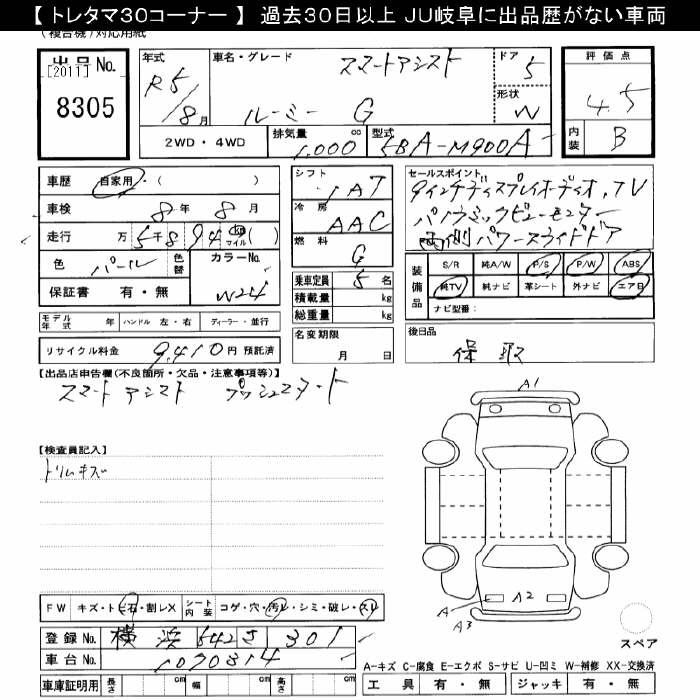 【 トレタマ30コーナー 】 過去30日以上 JU岐阜に出品歴がない車両
(複合機)対応用紙
出品No.
[2011]
8305
年式
R5/8月
車名・グレード
スマートアシスト
ルーミー G
ドア
5
形状
W
評価点
4.5
内装
B
2WD・4WD
排気量
1,000 cc
型式
5BA-M900A
車歴 自家用・( )
車検 8年 8月
走行 万 5千894 km マイル ( )
色 パール
色替
カラーNo.
W24
保証書 有・無
シフト
IAT
冷房
AAC
燃料
G
乗車定員 5名
積載量 kg
総重量 kg
セールスポイント
9インチディスプレイオーディオ,TV
パノラミックビューモニター
両側パワースライドドア
装備品
S/R 純A/W P/S P/W ABS
純TV 純ナビ 革シート 外ナビ エアB
ナビ型番:
モデル年式 年 ハンドル 左・右 ディーラー・並行
リサイクル料金 9,410円 預託済
名変期限
月 日
後日品
保 取
【出品店申告欄(不良箇所・欠品・注意事項等)】
スマートアシスト プッシュスタート
【検査員記入】
トリムキズ
A1
A
A2
A3
スペア
FW キズ・トビ石・割レX
シート内装 コゲ・穴・汚レ・シミ・破レ・スレ
登録No. 横浜 542 さ 301
車台No. 1090314
車庫証明用 長さ cm 幅 cm 高さ cm
A-キズ C-腐食 E-エクボ S-サビ U-凹ミ W-補修 XX-交換済
工具 有・無 ジャッキ 有・無